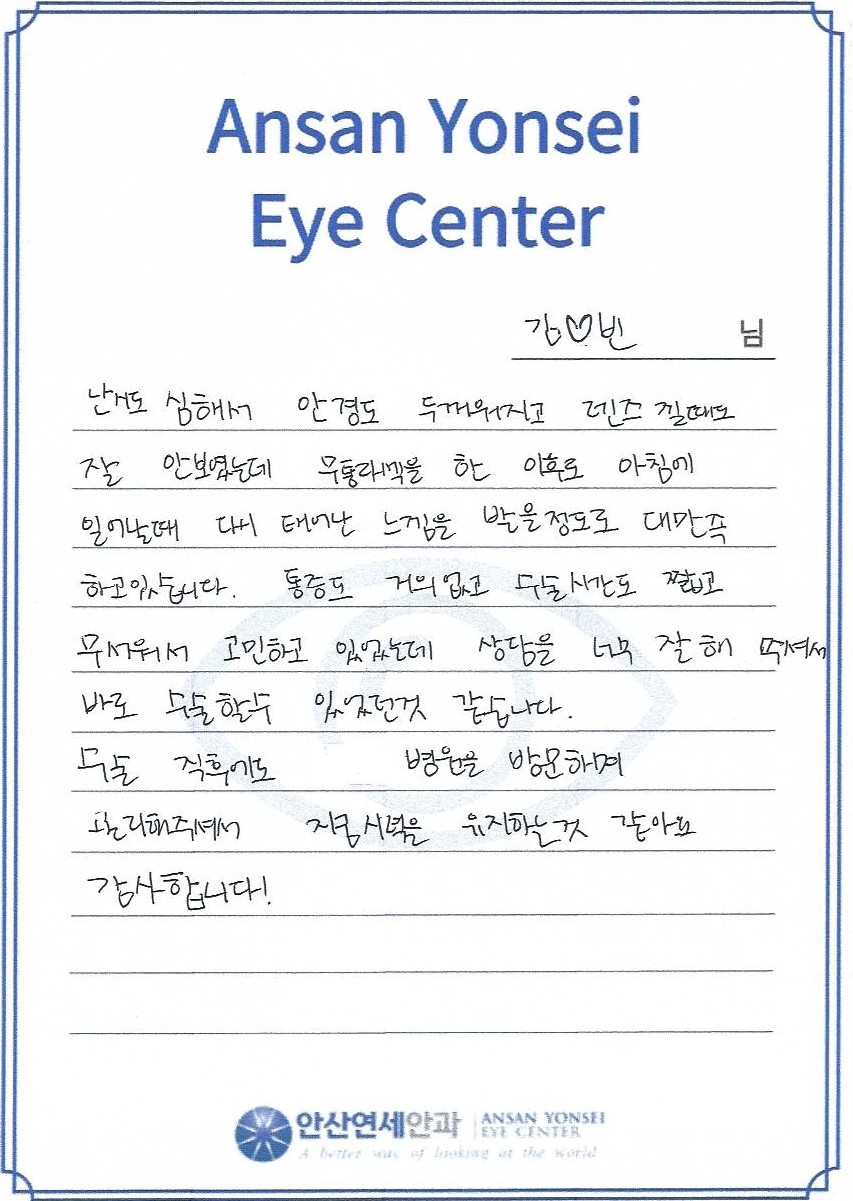 Ansan Yonsei
Eye Center
김♡빈 님
난시도 심해서 안경도 두꺼워지고 렌즈 낄때도
잘 안보였는데 무통라섹을 한 이후로 아침에
일어날때 다시 태어난 느낌을 받을정도로 대만족
하고있습니다. 통증도 거의없고 수술시간도 짧고
무서워서 고민하고 있었는데 상담을 너무 잘 해 주셔서
바로 수술할수 있었던것 같습니다.
수술 직후에도 병원을 방문하며
관리해주셔서 지금시력을 유지하는것 같아요
감사합니다!
안산연세안과 ANSAN YONSEI
EYE CENTER
A better way of looking at the world